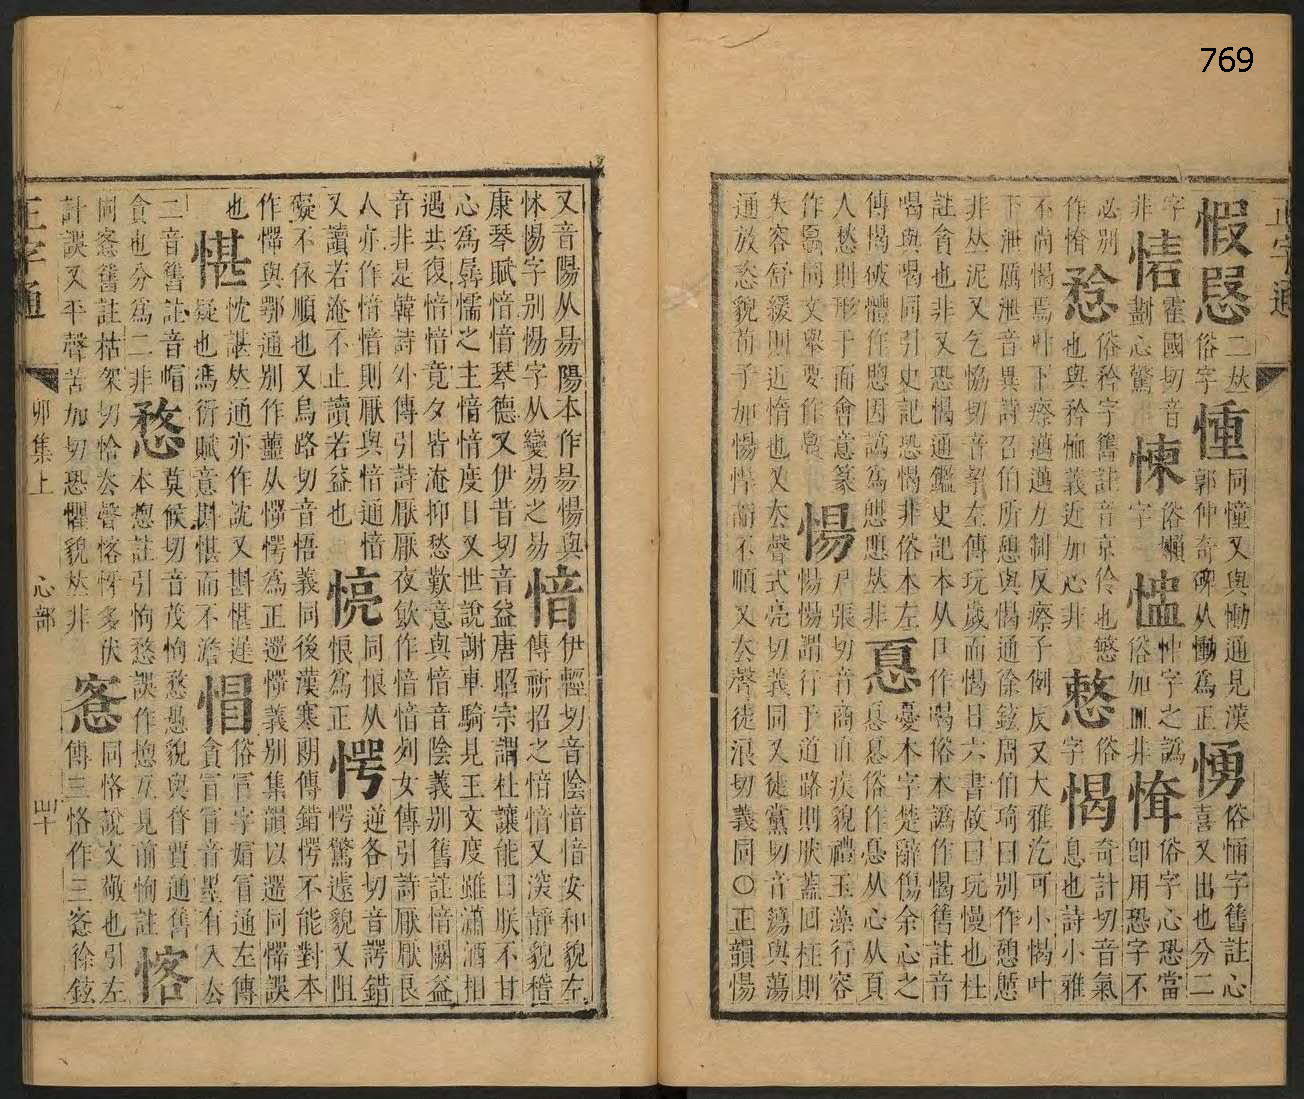 二𠀤俗字
同憧又與慟通見漢郭仲奇碑从慟為正
愑俗恿字舊註心喜又出也分二字非
霍國切音劃心驚
俗嬾字
忡字之譌俗加皿非
俗字心恐當卽用恐字不必別作
俗矜字舊註音京伶也慜也與矜恤義近加心非
憗俗字
愒奇計切音氣息也詩小雅
不尚愒焉叶下瘵邁邁力制反瘵子例反又大雅汔可小愒叶
下泄厲泄音異詩召伯所憩與愒通徐鉉周伯琦曰別作憩
非𠀤泥又乞惱切音挈左傳玩歲而愒日六書故曰玩愒也杜
註貪也非又恐愒通鑑史記本从口作喝俗本譌作愒舊註音
喝與喝同引史記恐愒非俗本左
傳愒破體作愡因譌為𠀤非
㥑憂本字楚辭傷余心之㥑㥑俗作從心从頁
人愁則形于面會意篆作㥑同文舉要作
愓尸張切音商直疾貌禮玉藻行容愓愓謂行于道路則𦚾葢回枉則
失容舒緩則近惰也又去聲式亮切義同又徒黨切音蕩與蕩
通放恣貌荀子加愓悍而不順又去聲徒浪切義同〇正韻愓
正字通
又音陽从昜陽本作昜愓與
怵惕字別惕字从變易之易
愔伊輕切音陰愔愔安和貌左傳祈招之愔愔又深靜貌稽
康琴賦愔愔琴德又伊昔切音益唐昭宗謂杜讓能曰朕不甘
心爲孱懦之主愔愔度日又世說謝車騎見王文度雖瀟洒相
遇其復愔愔竟夕皆淹抑愁歎意與愔音陰義別舊註愔闗益
音非是韓詩外傳引詩厭厭夜飲作愔愔列女傳引詩厭厭良
人亦作愔愔則厭與愔通愔
又讀若淹不止讀若益也
同恨从恨爲正
愕逆各切音諤錯愕驚遽貌又阻
礙不依順也又烏路切音悟義同後漢寒朗傳錯愕不能對本
作㦍與鄂通別作蘁从㦍愕爲正遻㦍義別集韻以遻同㦍誤
也
愖忱諶𠀤通亦作訦又斟愖遟疑也馮衍賦意斟愖而不澹
㥚俗冒字媢冒通左傳貪冒冒音墨有入公
二音舊註音帽貪也分爲二非
愗莫候切音茂怐愗愚貌與瞀貿通舊本㥸註引怐愁誤作㥸互見前怐註
愘同愙舊註枯架切恰去聲愘㤉多伏
計誤又平聲苦加切恐懼貌𠀤非
愙同恪說文敬也引左傳三恪作三愙徐鉉
正字通
卯集上
心部
四十
769